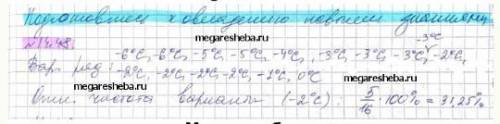 Подготовимся к овладению новыми знаниями
№14.48. megaresheba.ru -3°C
-6°C, -6°C, -5°C, -5°C, -4°C, -3°C, -3°C, -3°C, -2°C,
Вар. ряд: megaresheba.ru
-2°C, -2°C, -2°C, -2°C, -1°C, 0°C
megaresheba.ru
Отн. частота варианты (-2°C): 5/16 · 100% = 31,25%
megaresheba.ru